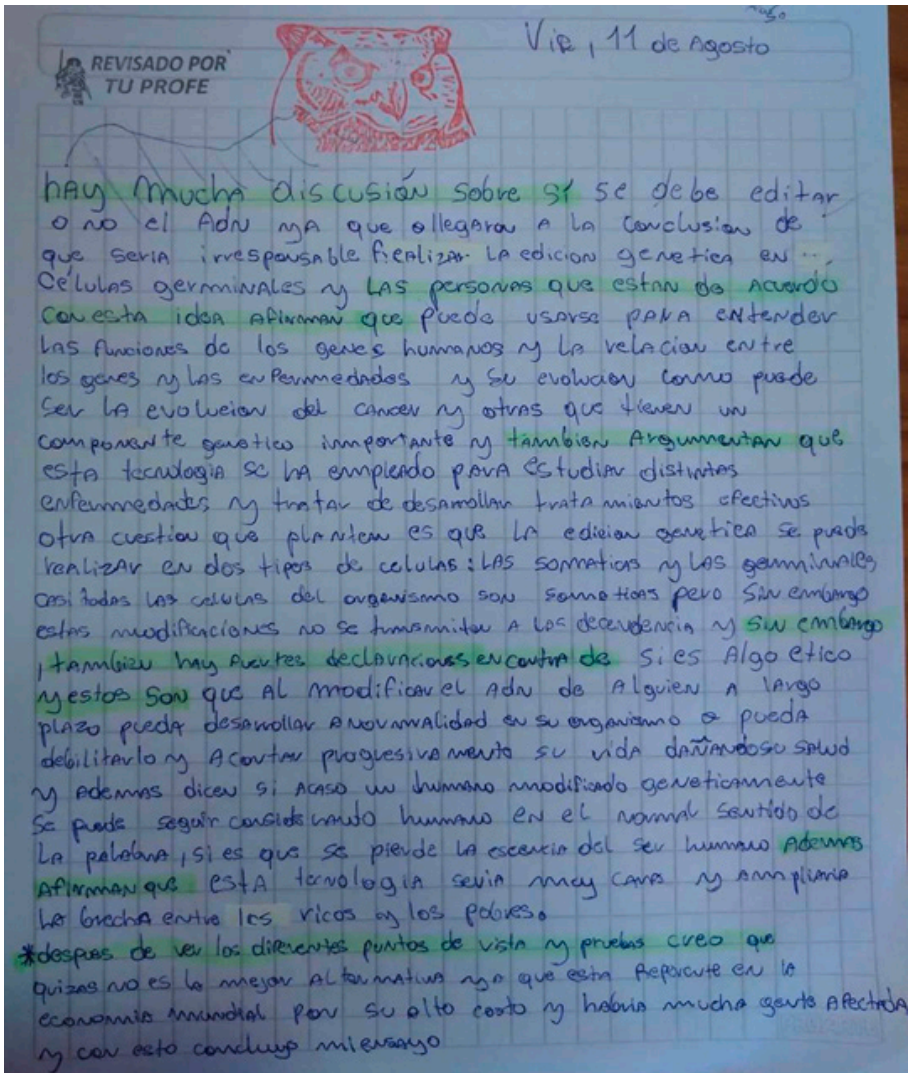 Vie, 11 de Agosto
REVISADO POR
TU PROFE
hay mucha discusión sobre sí se debe editar
o no el Adn ya que ollegaron A la conclusion de
que seria irresponsable realizar LA edicion genetica en ...
Células germinales y LAS personas que estan de Acuerdo
con esta idea Afirman que puede usarse para entender
Las funciones de los genes humanos y la relacion entre
los genes y las enfermedades y su evolucion como puede
ser la evolucion del cancer y otras que tienen un
componente genetico importante y tambien Argumentan que
esta tecnologia se ha empleado para estudiar distintas
enfermedades y tratar de desarrollar tratamientos efectivos
otra cuestion que plantean es que la edicion genetica se puede
realizar en dos tipos de celulas: las somaticas y las germinales
casi todas las celulas del organismo son somaticas pero sin embargo
estas modificaciones no se transmiten A las decendencia y sin embargo
, tambien hay fuertes declaraciones encontra de si es Algo etico
y estos son que Al modificar el Adn de Alguien A largo
plazo pueda desarrollar Anovamalidad en su organismo o pueda
debilitarlo y Acortar progresivamente su vida dañandosu salud
y Ademas dicen si Acaso un humano modificado geneticamente
se puede seguir considerando humano en el normal sentido de
La palabra, si es que se pierde la escencia del ser humano Ademas
Afirman que esta tecnologia seria muy cara y Ampliaria
la brecha entre los ricos y los pobres.
*despues de ver los diferentes puntos de vista y pruebas creo que
quizas no es la mejor Alternativa ya que esta Repercute en la
economia mundial por su alto costo y habria mucha gente Afectada
y con esto concluyo mi ensayo